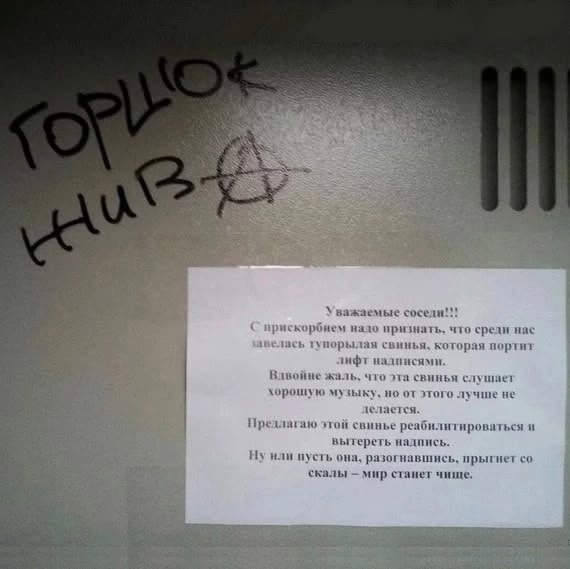 ГОРШОК
ЖИВ
Уважаемые соседи!!!
С прискорбием надо признать, что среди нас
завелась тупорылая свинья, которая портит
лифт надписями.
Вдвойне жаль, что эта свинья слушает
хорошую музыку, но от этого лучше не
делается.
Предлагаю этой свинье реабилитироваться и
вытереть надпись.
Ну или пусть она, разогнавшись, прыгнет со
скалы – мир станет чище.